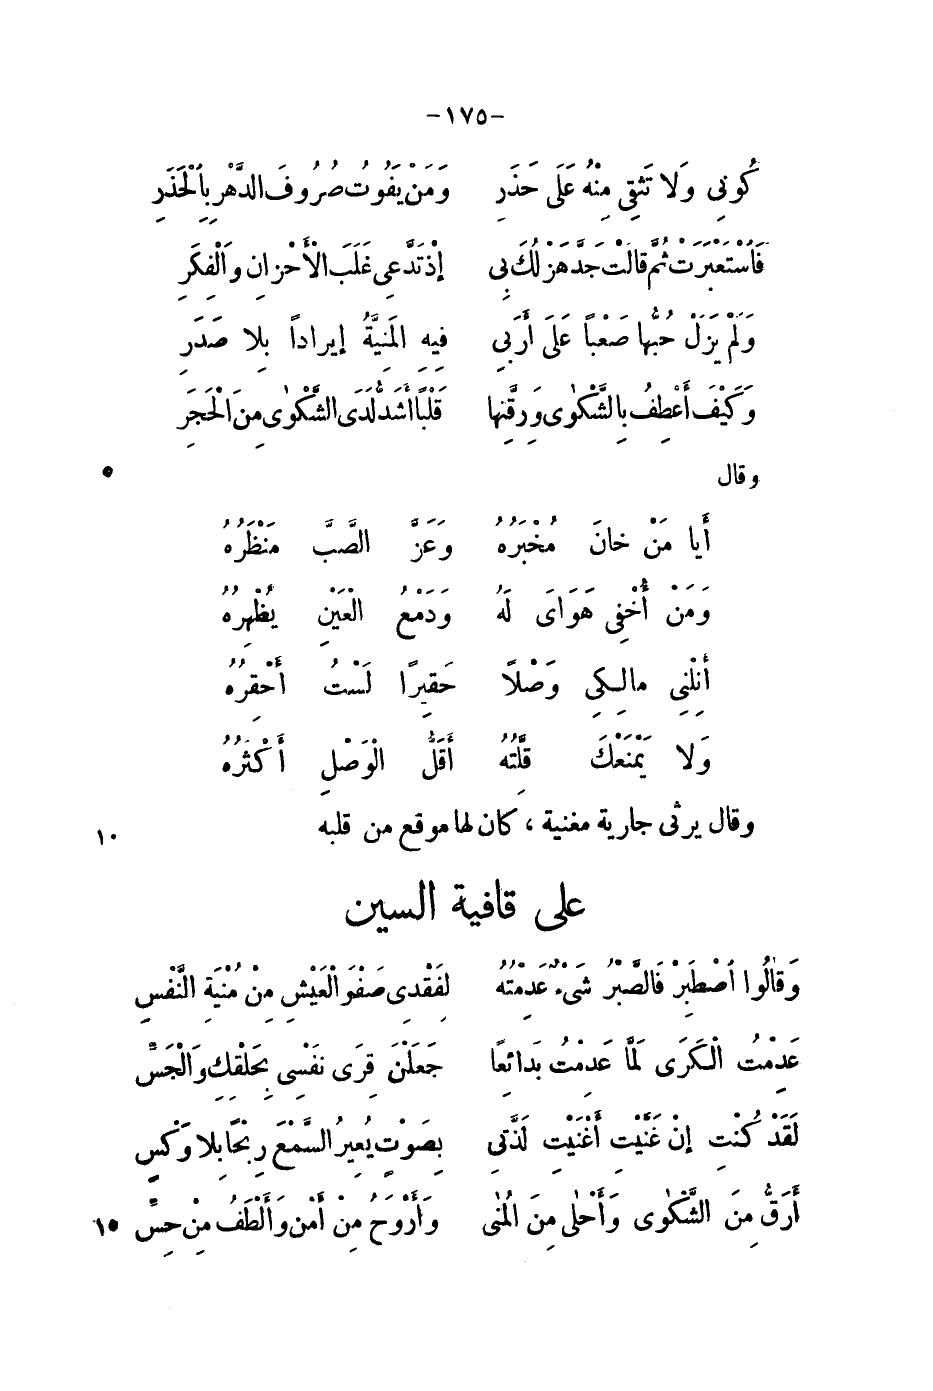 -١٧٥-
كُونِى وَلا تَثِقِى مِنْهُ عَلَى حَذَرِ وَمَنْ يَفُوتُ صُرُوفَ الدَّهْرِ بِالْحَذَرِ
فَاسْتَعْبَرَتْ ثُمَّ قالَتْ جَدَّ هَزْلُكَ بِى إذْ تَدَّعِى غَلَبَ الأَحْزانِ وَالْفِكَرِ
وَلَمْ يَزَلْ حُبُّها صَعْباً عَلَى أَرَبِى فِيهِ المَنِيَّةُ إيراداً بِلا صَدَرِ
وَكَيْفَ أَعْطِفُ بِالشَّكْوٰى وَرِقَّتِها قَلْبًا أَشَدَّ لَدَى الشَّكْوٰى مِنَ الْحَجَرِ
وقال ٥
أَيا مَنْ خانَ مُخْبَرُهُ وَعَزَّ الصَّبَّ مَنْظَرُهُ
وَمَنْ أُخْفِى هَوَاىَ لَهُ وَدَمْعُ الْعَيْنِ يُظْهِرُهُ
أَنِلْنِى مالِكِى وَصْلًا حَقِيرًا لَسْتُ أَحْقِرُهُ
وَلا يَمْنَعْكَ قِلَّتُهُ أَقَلُّ الْوَصْلِ أَكْثَرُهُ
وقال يرثى جارية مغنية ، كان لها موقع من قلبه ١٠
على قافية السين
وَقالُوا اصْطَبِرْ فَالصَّبْرُ شَىْءٌ عَدِمْتُهُ لِفَقْدِى صَفْوَ الْعَيْشِ مِنْ مُنْيَةِ النَّفْسِ
عَدِمْتُ الْكَرَى لَمَّا عَدِمْتُ بَدائِعًا جَعَلْنَ قِرَى نَفْسِى بِحَلْقِكِ وَالْجَسِّ
لَقَدْ كُنْتِ إنْ غَنَّيْتِ أَغْنَيْتِ لَذَّتِى بِصَوْتٍ يُعِيرُ السَّمْعَ رِبْحًا بِلا وَكْسِ
أَرَقُّ مِنَ الشَّكْوٰى وَأَحْلٰى مِنَ المُنٰى وَأَرْوَحُ مِنْ أَمْنٍ وَأَلْطَفُ مِنْ حِسِّ ١٥